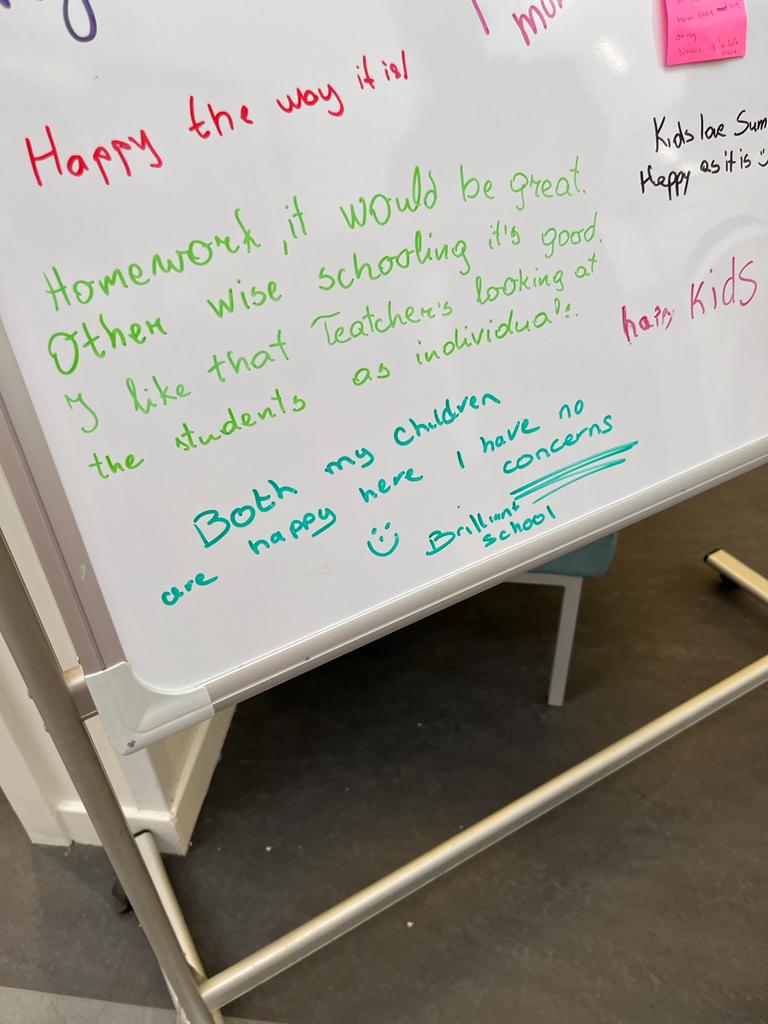 Happy the way it is!
Homework, it would be great.
Other wise schooling it's good.
I like that Teatcher's looking at
the students as individuals.
Both my children
are happy here I have no
concerns
Brilliant
school
how they are
doing.
School is a safe
place.
Kids love Sum
Happy as it is
happy Kids